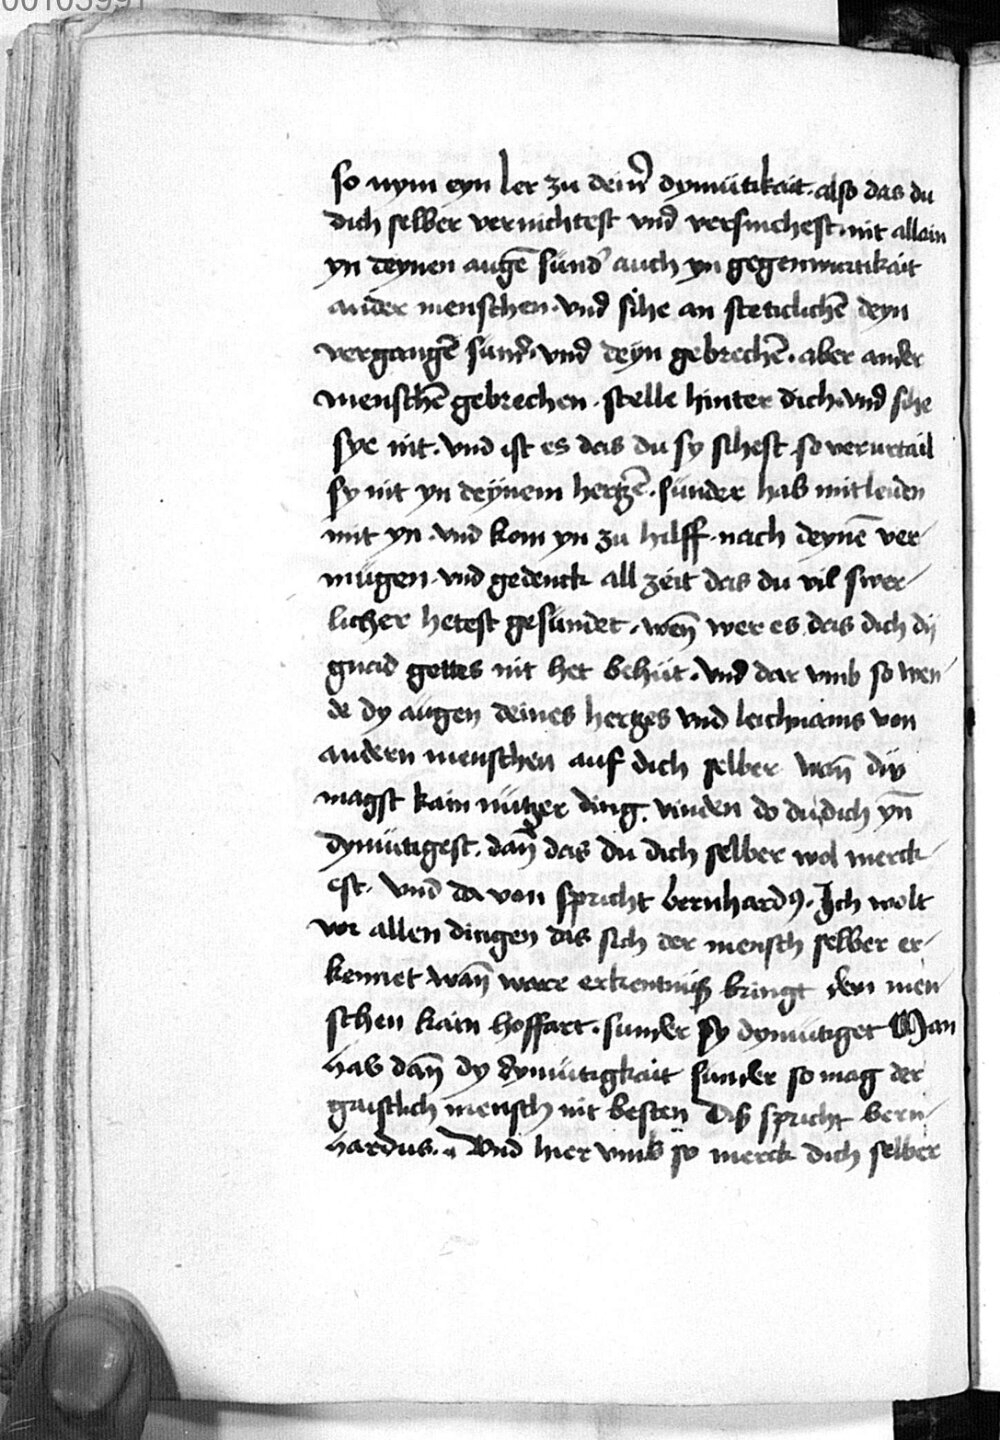 00103991
so nym eyn ler zu deinˀ dymütikait. also das du
dich selber vernichtest vnd versmehest. nit allain
yn deynen augē sündˀ auch yn gegenwurtikait
ander menschen. vnd sihe an steticlichē deyn
vergangē sundˀ. vnd deyn gebrechē. aber ander
menschē gebrechen. stelle hinter dich. vnd sihe
sye nit. vnd ist es das du sy sihest. so verurtail
sy nit yn deynem hertzē. sünder hab mitleiden
mit yn. vnd kom yn zu hilff. nach deynē ver/
mügen. vnd gedenck all zeit das du vil swer/
licher hetest gesündet. wen̄ wer es das dich dy
gnad gottes nit het behüt. vnd dar vmb so wen/
de dy augen deines hertzes vnd leichnams von
andern menschen auf dich selber wan̄ du
magst kain nützer ding. vinden do du dich yn̄
dymütigest. dan̄ das du dich selber wol merck/
est. vnd da von spricht bernhardꝰ. Ich wolt
vor allen dingen das sich der mensch selber er/
kennet wan̄ ware erkentnüß bringt dem men
schen kain hoffart. sunder sy dymütiget Man
hab dan̄ dy dymütigkait sunder so mag der
gaistlich mensch nit besten Diß spricht bern/
hardus. Vnd hier vmb so merck dich selber